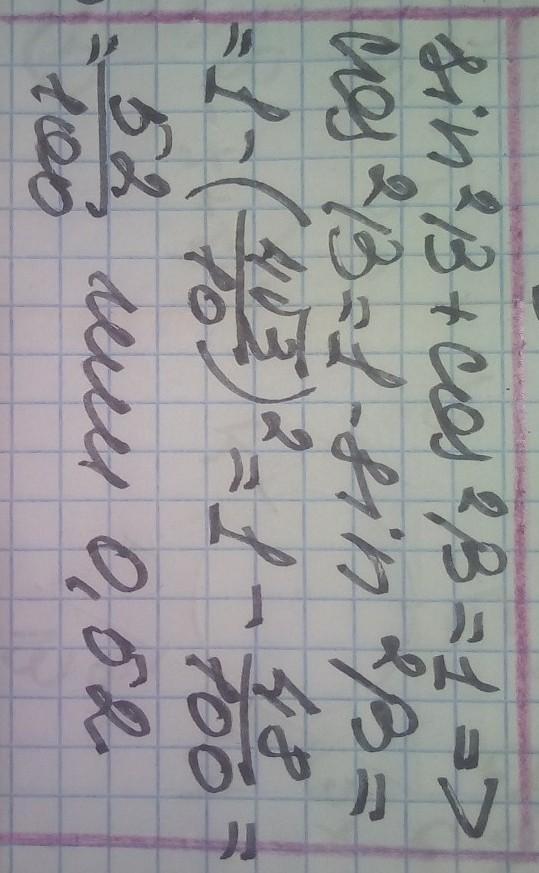 sin²β + cos²β = 1 =>
cos²β = 1 - sin²β =
= 1 - (4√3/10)² = 1 - 48/100 =
= 52/100 или 0,52